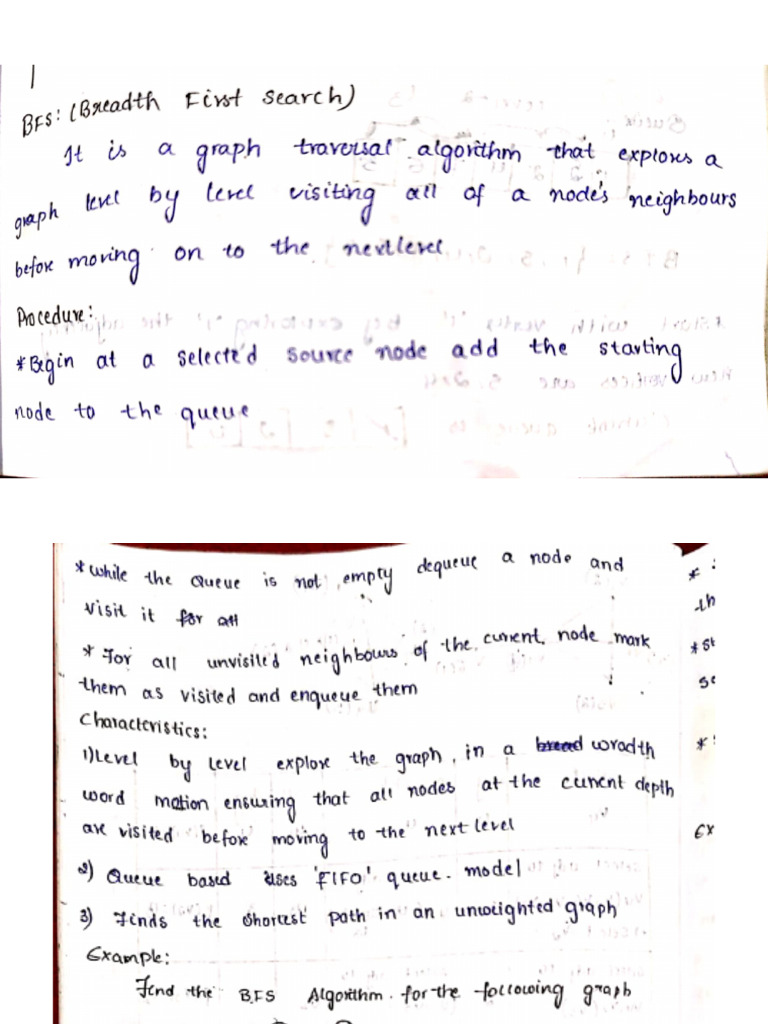 BFS: (Breadth First Search)
It is a graph traversal algorithm that explores a
graph level by level visiting all of a node's neighbours
before moving on to the next level
Procedure:
* Begin at a selected source node add the starting
node to the queue
* while the Queue is not empty dequeue a node and
visit it for all
* For all unvisited neighbours of the current node mark
them as visited and enqueue them
Characteristics:
1) Level by level explore the graph, in a bread wradth
word motion ensuring that all nodes at the current depth
are visited before moving to the next level
2) Queue based uses 'FIFO' queue model
3) Finds the shortest path in an unweighted graph
Example:
Find the BFS Algorithm for the following graph